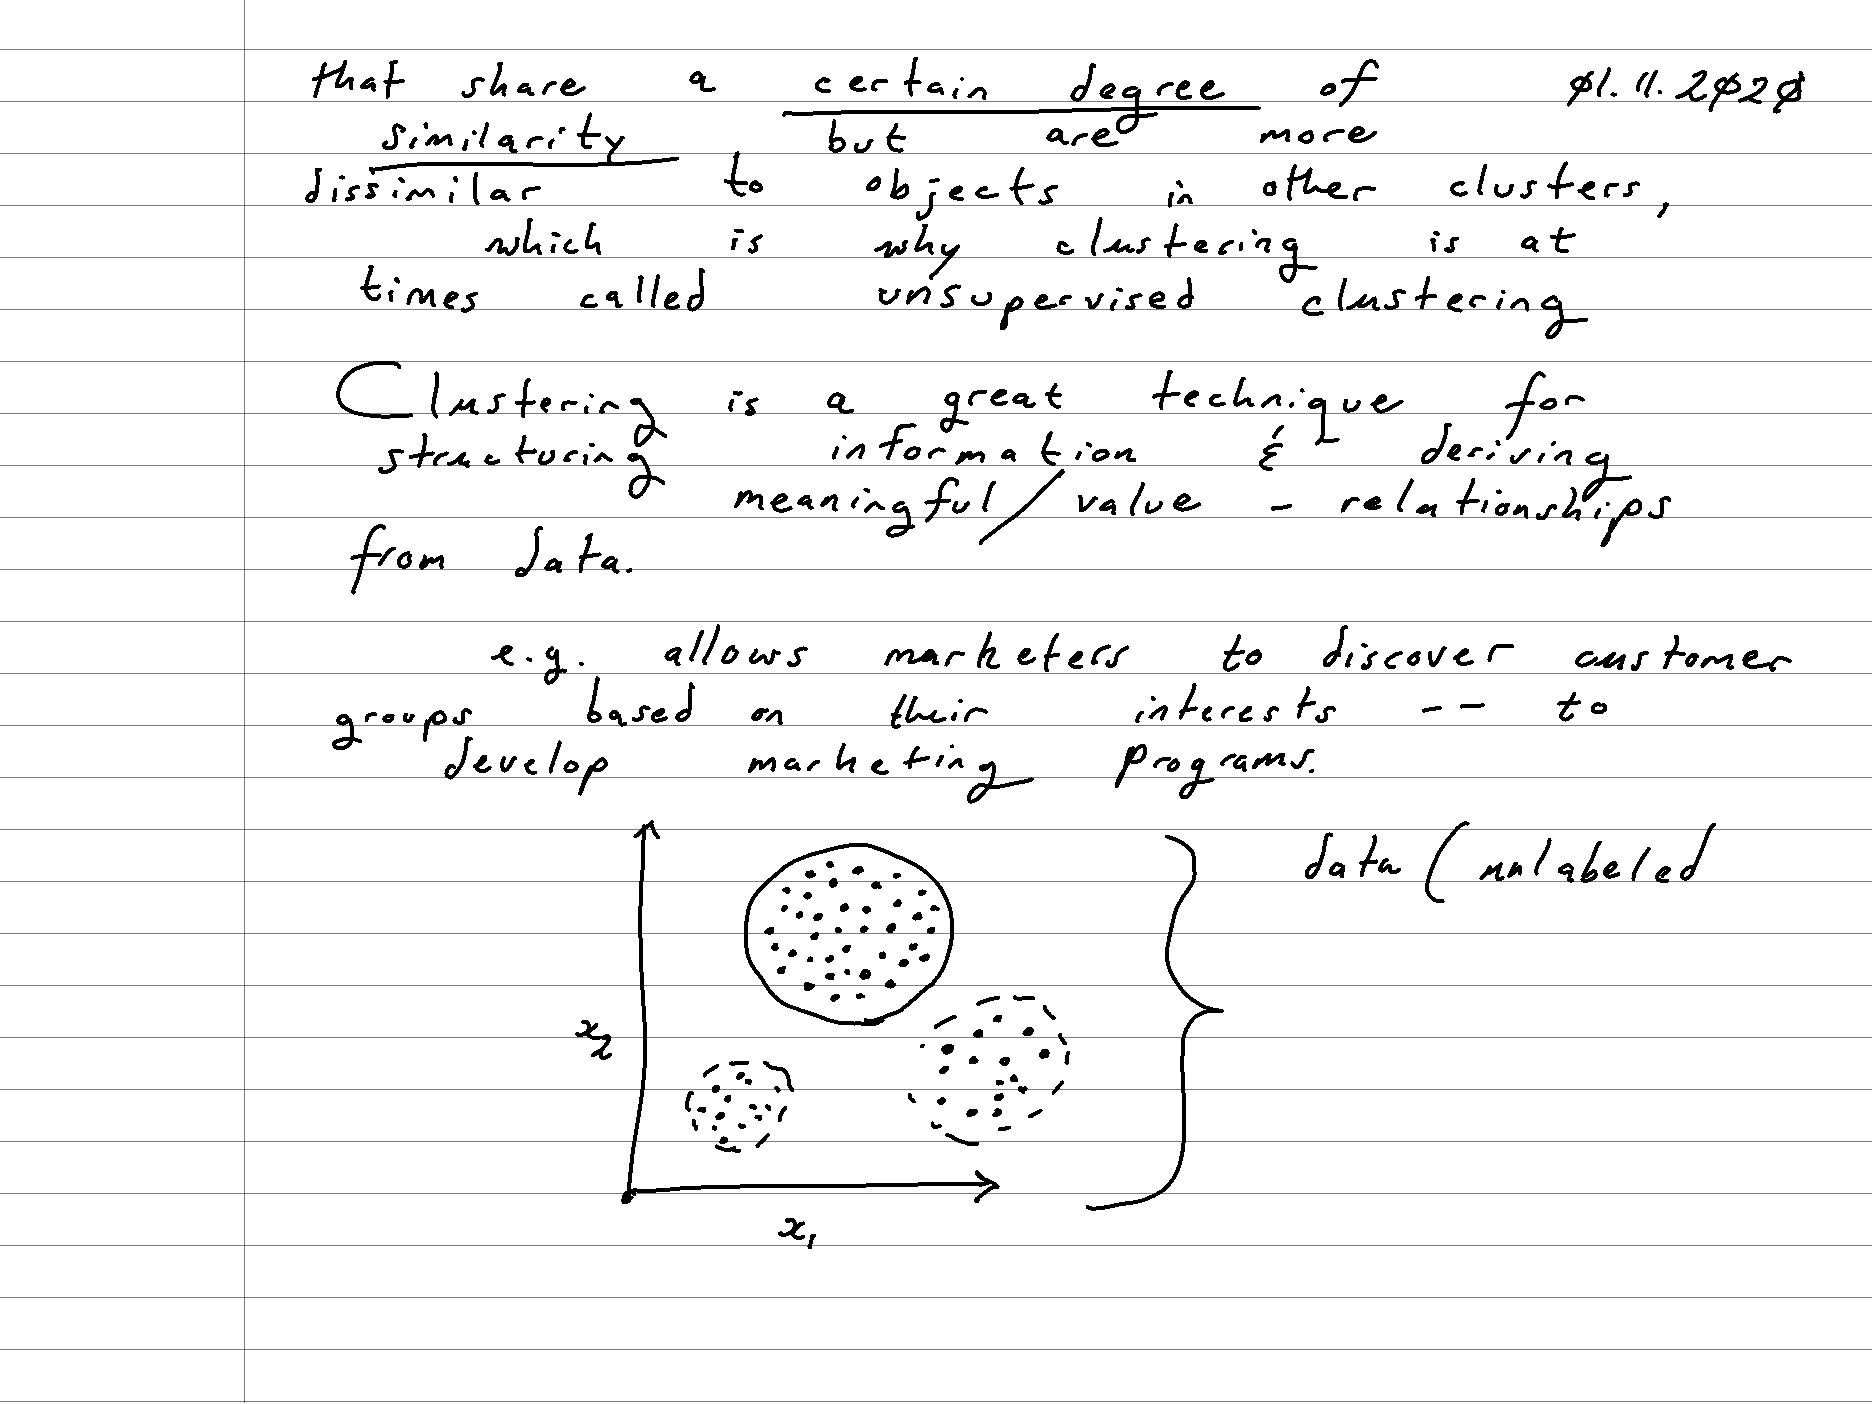 that share a certain degree of 01.11.2020
similarity but are more
dissimilar to objects in other clusters,
which is why clustering is at
times called unsupervised clustering
Clustering is a great technique for
structuring information & deriving
meaningful / value - relationships
from data.
e.g. allows marketers to discover customer
groups based on their interests -- to
develop marketing programs.
data (unlabeled
x2
x1